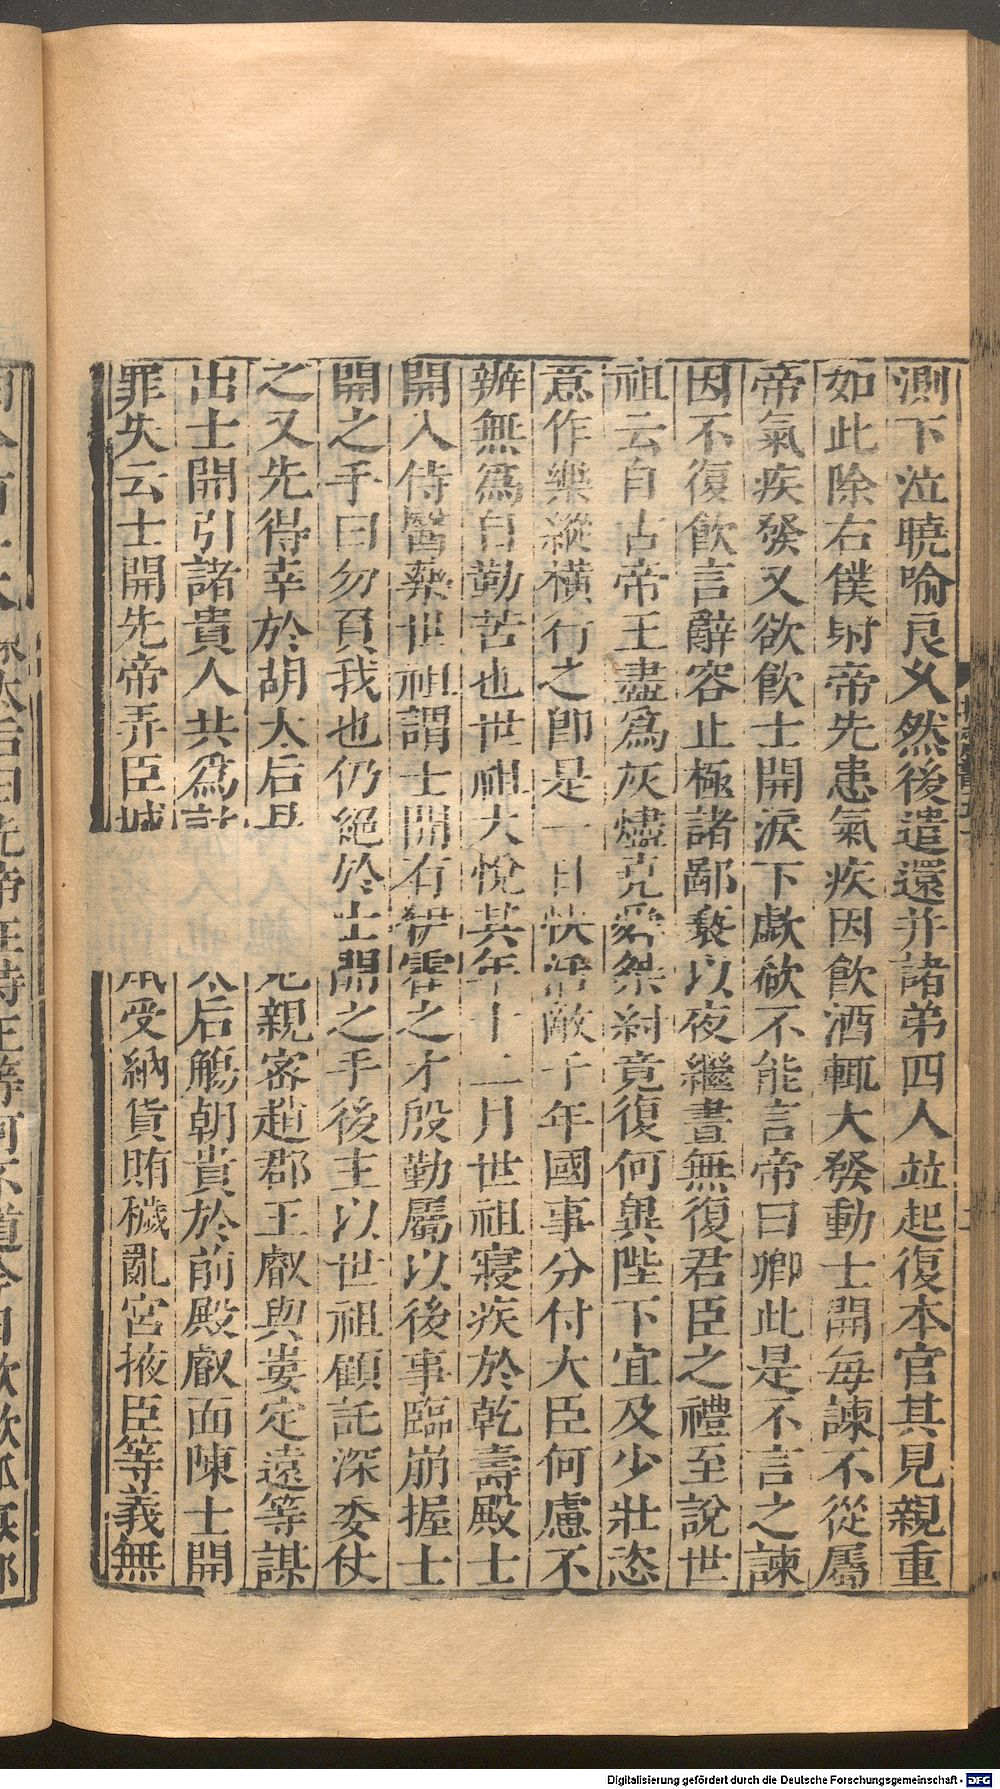 測下泣曉喻良久然後遣還并諸弟四人並起復本官其見親重
如此除右僕射帝先患氣疾因飲酒輒大發動士開每諫不從屬
帝氣疾發又欲飲士開淚下歔欷不能言帝曰卿此是不言之諫
因不復飲言辭容止極諸鄙褻以夜繼晝無復君臣之禮至說世
祖云自古帝王盡為灰燼堯舜桀紂竟復何異陛下宜及少壯恣
意作樂縱橫行之即是一日快活敵千年國事分付大臣何慮不
辦無為自勤苦也世祖大悅其年十二月世祖寢疾於乾壽殿士
開入侍醫藥世祖謂士開有伊霍之才殷勤屬以後事臨崩握士
開之手曰勿負我也仍絕於士開之手後主以世祖顧託深委仗
之又先得幸於胡太后 親密趙郡王叡與婁定遠等謀
出士開引諸貴人共為 后觴朝貴於前殿叡面陳士開
罪失云士開先帝弄臣城 受納貨賄穢亂宮掖臣等義無
Digitalisierung gefördert durch die Deutsche Forschungsgemeinschaft - DFG